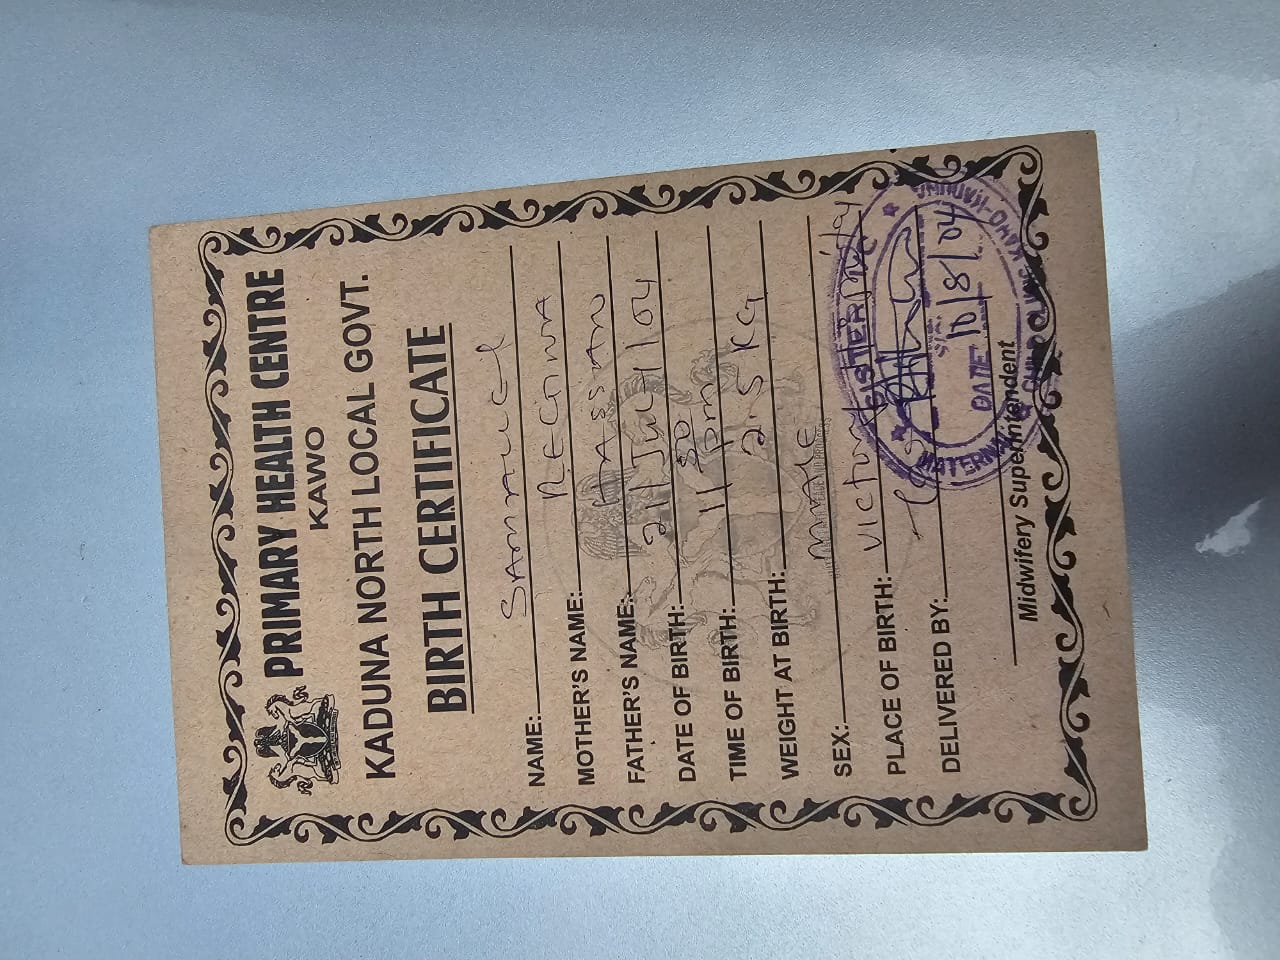 PRIMARY HEALTH CENTRE
KAWO
KADUNA NORTH LOCAL GOVT.
BIRTH CERTIFICATE
NAME: SAMMAUEL
MOTHER'S NAME: REGINA
FATHER'S NAME: HASSAN
DATE OF BIRTH: 21 July / 04
TIME OF BIRTH: 11 pm
WEIGHT AT BIRTH: 2.5 KG
SEX: male
PLACE OF BIRTH:
DELIVERED BY:
SISTER
DATE 10/8/04
MATERNITY & CHILD CLINIC KAWO-KADUNA
Midwifery Superintendent